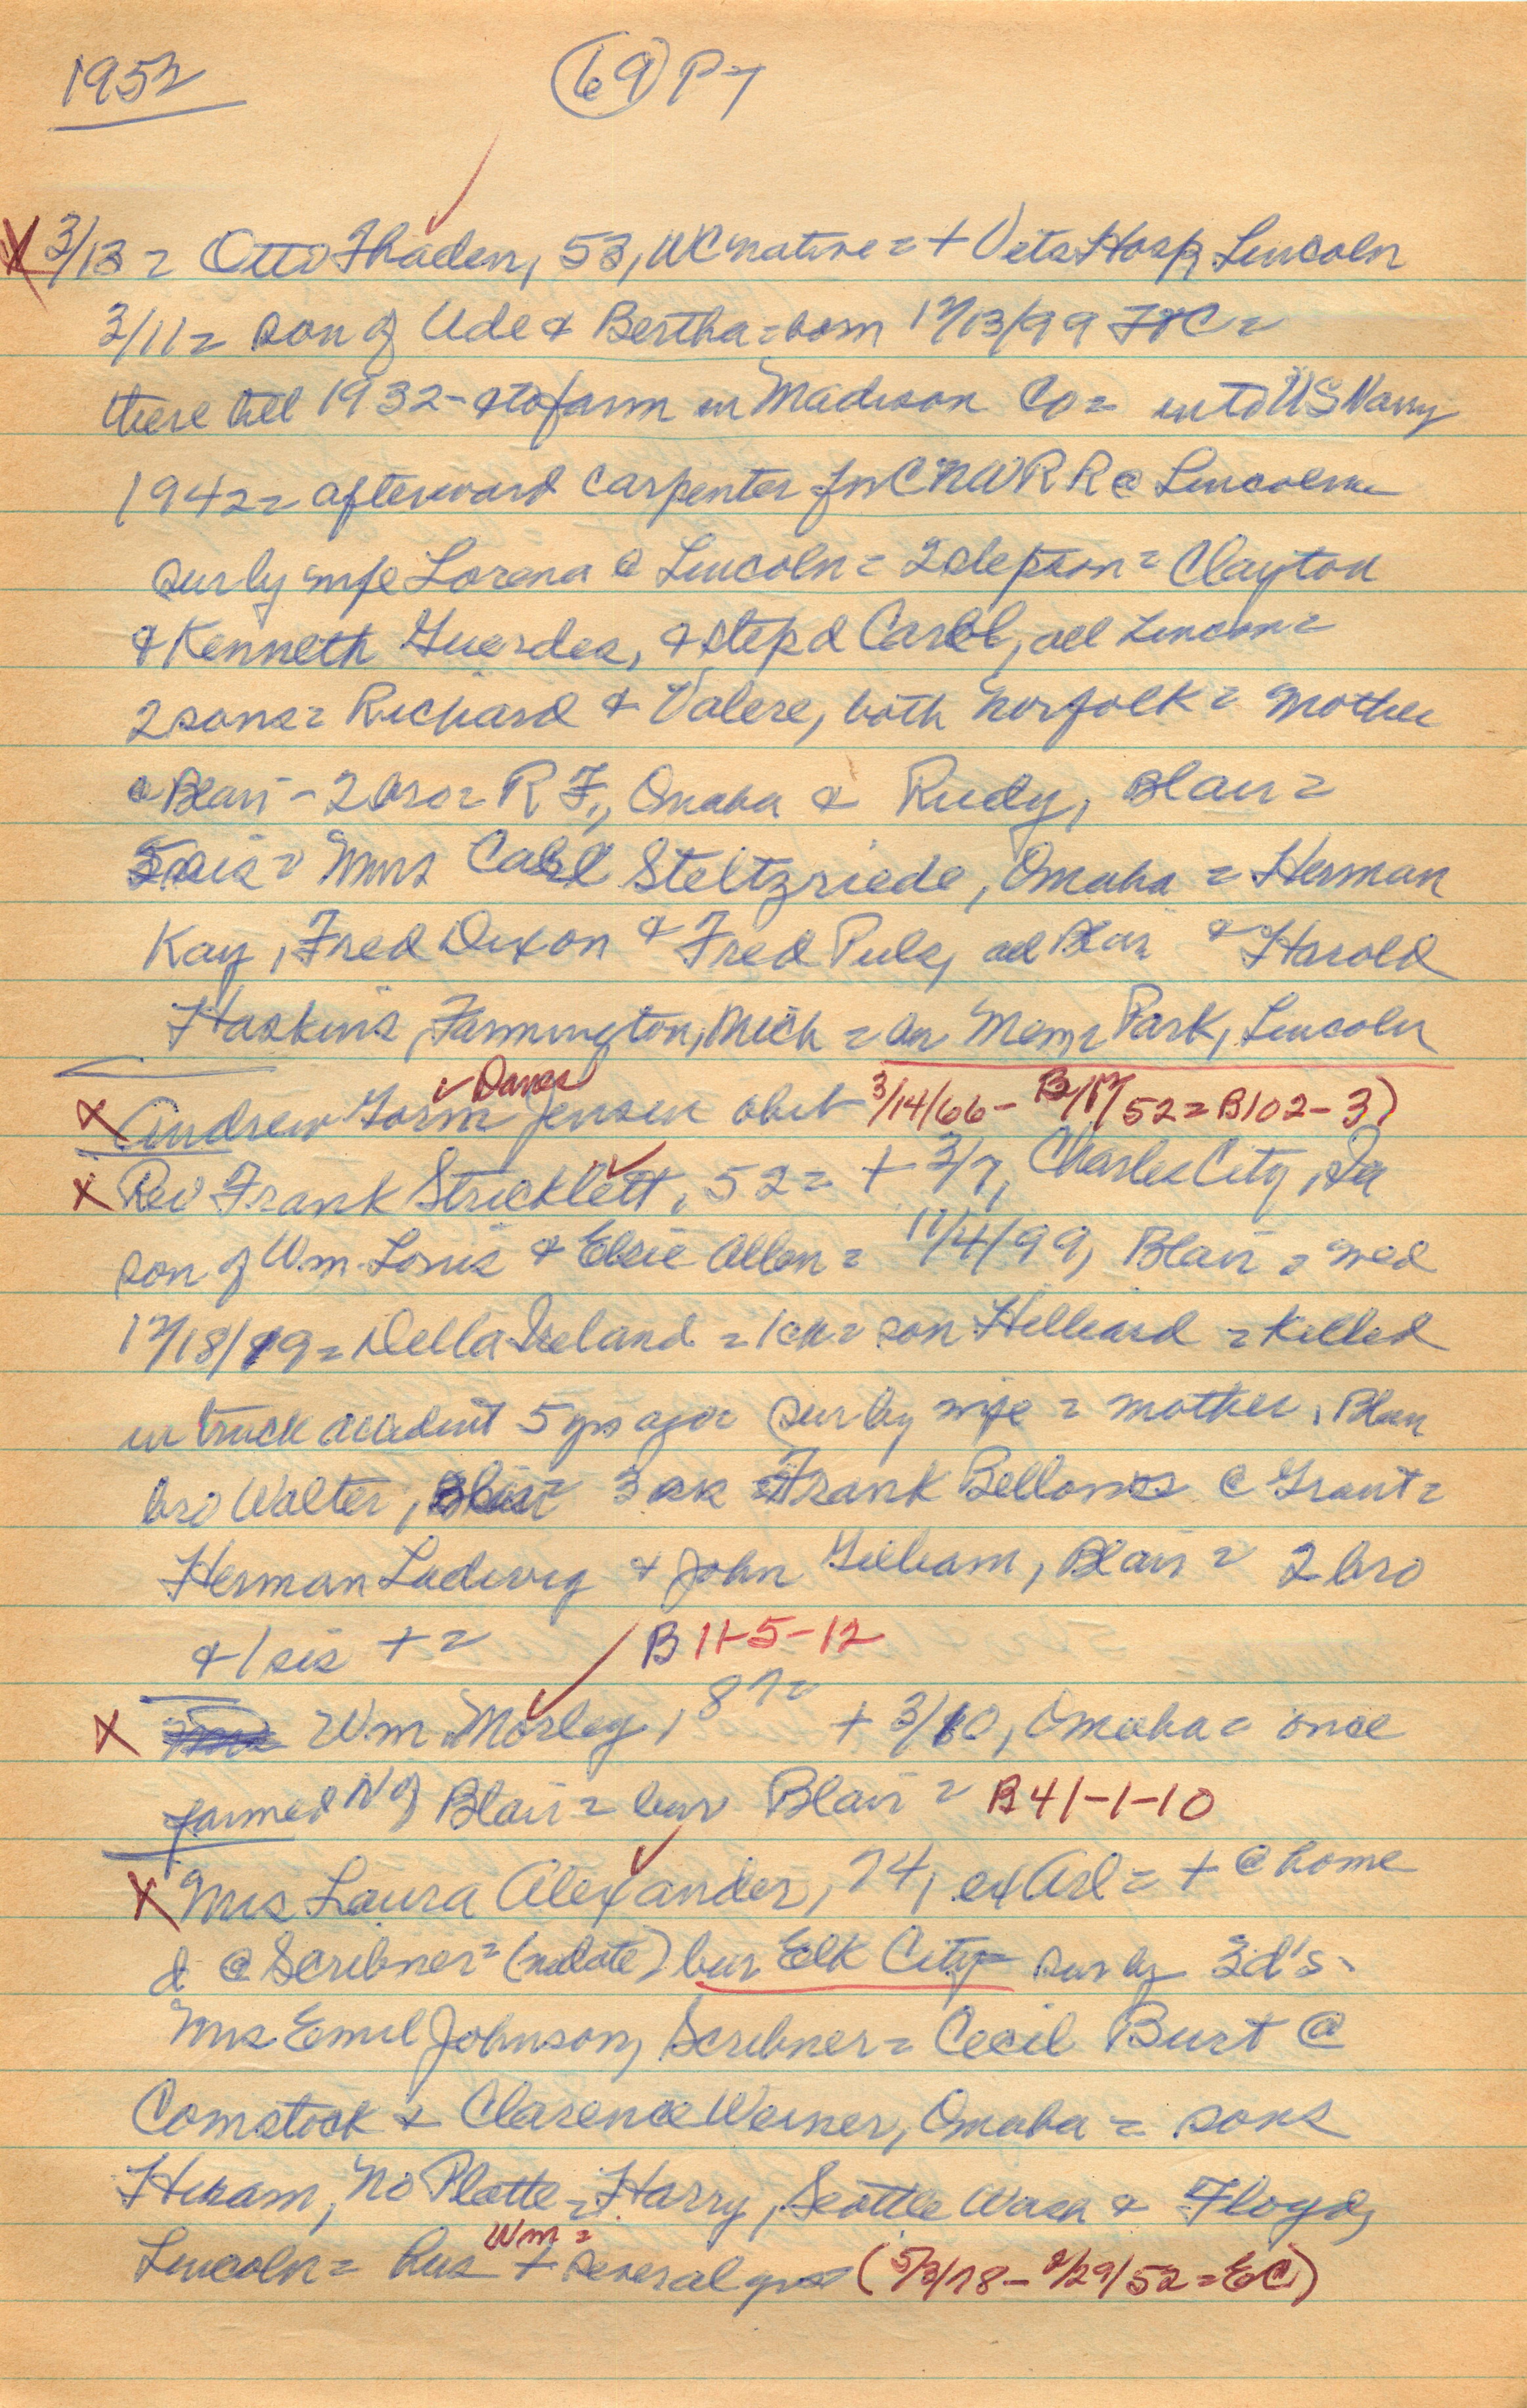 1952 (69) P7
3/13 = Otto Thaden, 53, WC native = + Vets Hosp, Lincoln
3/11 = son of Ude & Bertha = born 12/13/99 = 
there till 1932 - & to farm in Madison Co = into US Navy
1942 = afterward carpenter for CNWRR @ Lincoln =
sur by wife Lorena @ Lincoln = 2 stepson = Clayton
& Kenneth Guerdes, & step d Carol, all Lincoln =
2 sons = Richard & Valere, both Norfolk = mother
@ Blair - 2 bro = R F., Omaha & Rudy, Blair =
5 sis = Mmes Carl Steltzriede, Omaha = Herman
Kay, Fred Dixon & Fred Puls, all Blair & Harold
Haskins, Farmington, Mich = bur Mem = Park, Lincoln
Danes
X Andrew Gorm Jensen obit 3/14/66 - 52 = B102-3)
X Rev Frank Stricklett, 52 = + 3/7, Charles City, Ia
son of Wm Louis & Elsie Allen = 11/4/99, Blair = wed
12/18/19 = Della Ireland = 1 ch = son Hilliard = killed
in truck accident 5 yrs ago = sur by wife = mother, Blair
bro Walter, Blair 3 sis = Frank Bellows @ Grant =
Herman Ludwig & John Gilliam, Blair = 2 bro
& 1 sis + = B 11-5-12
X Wm Morley, 87 = + 3/10, Omaha = once
farmed N of Blair = bur Blair = B41-1-10
X Mrs Laura Alexander, 74, ex Arl = + @ home
d @ Scribner = (no date) bur Elk City - sur by 3 d's -
Mrs Emil Johnson, Scribner = Cecil Burt @
Comstock & Clarence Weiner, Omaha = sons
Hiram, No Platte = Harry, Seattle Wash & Floyd,
Wm =
Lincoln = hus + several yrs (5/3/78 - 2/29/52 = EC)